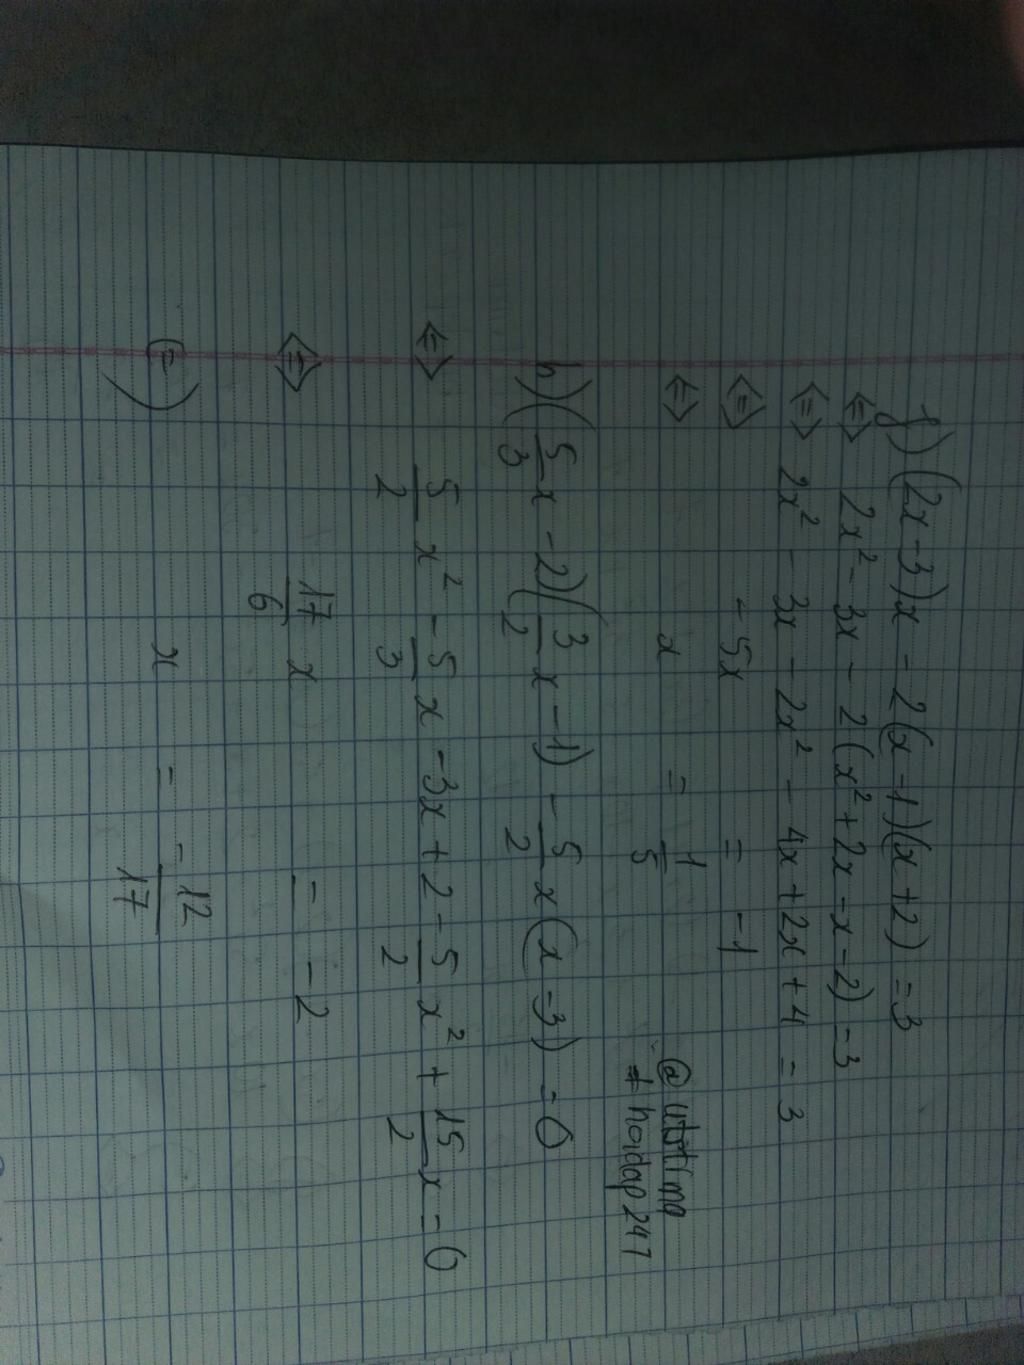 f) (2x - 3)x - 2(x - 1)(x + 2) = 3
<=> 2x² - 3x - 2(x² + 2x - x - 2) = 3
<=> 2x² - 3x - 2x² - 4x + 2x + 4 = 3
<=> - 5x = -1
<=> x = 1/5
@ututimp
# hoidap247
h) (5/3 x - 2)(3/2 x - 1) - 5/2 x(x - 3) = 0
<=> 5/2 x² - 5/3 x - 3x + 2 - 5/2 x² + 15/2 x = 0
<=> 17/6 x = -2
(=) x = -12/17